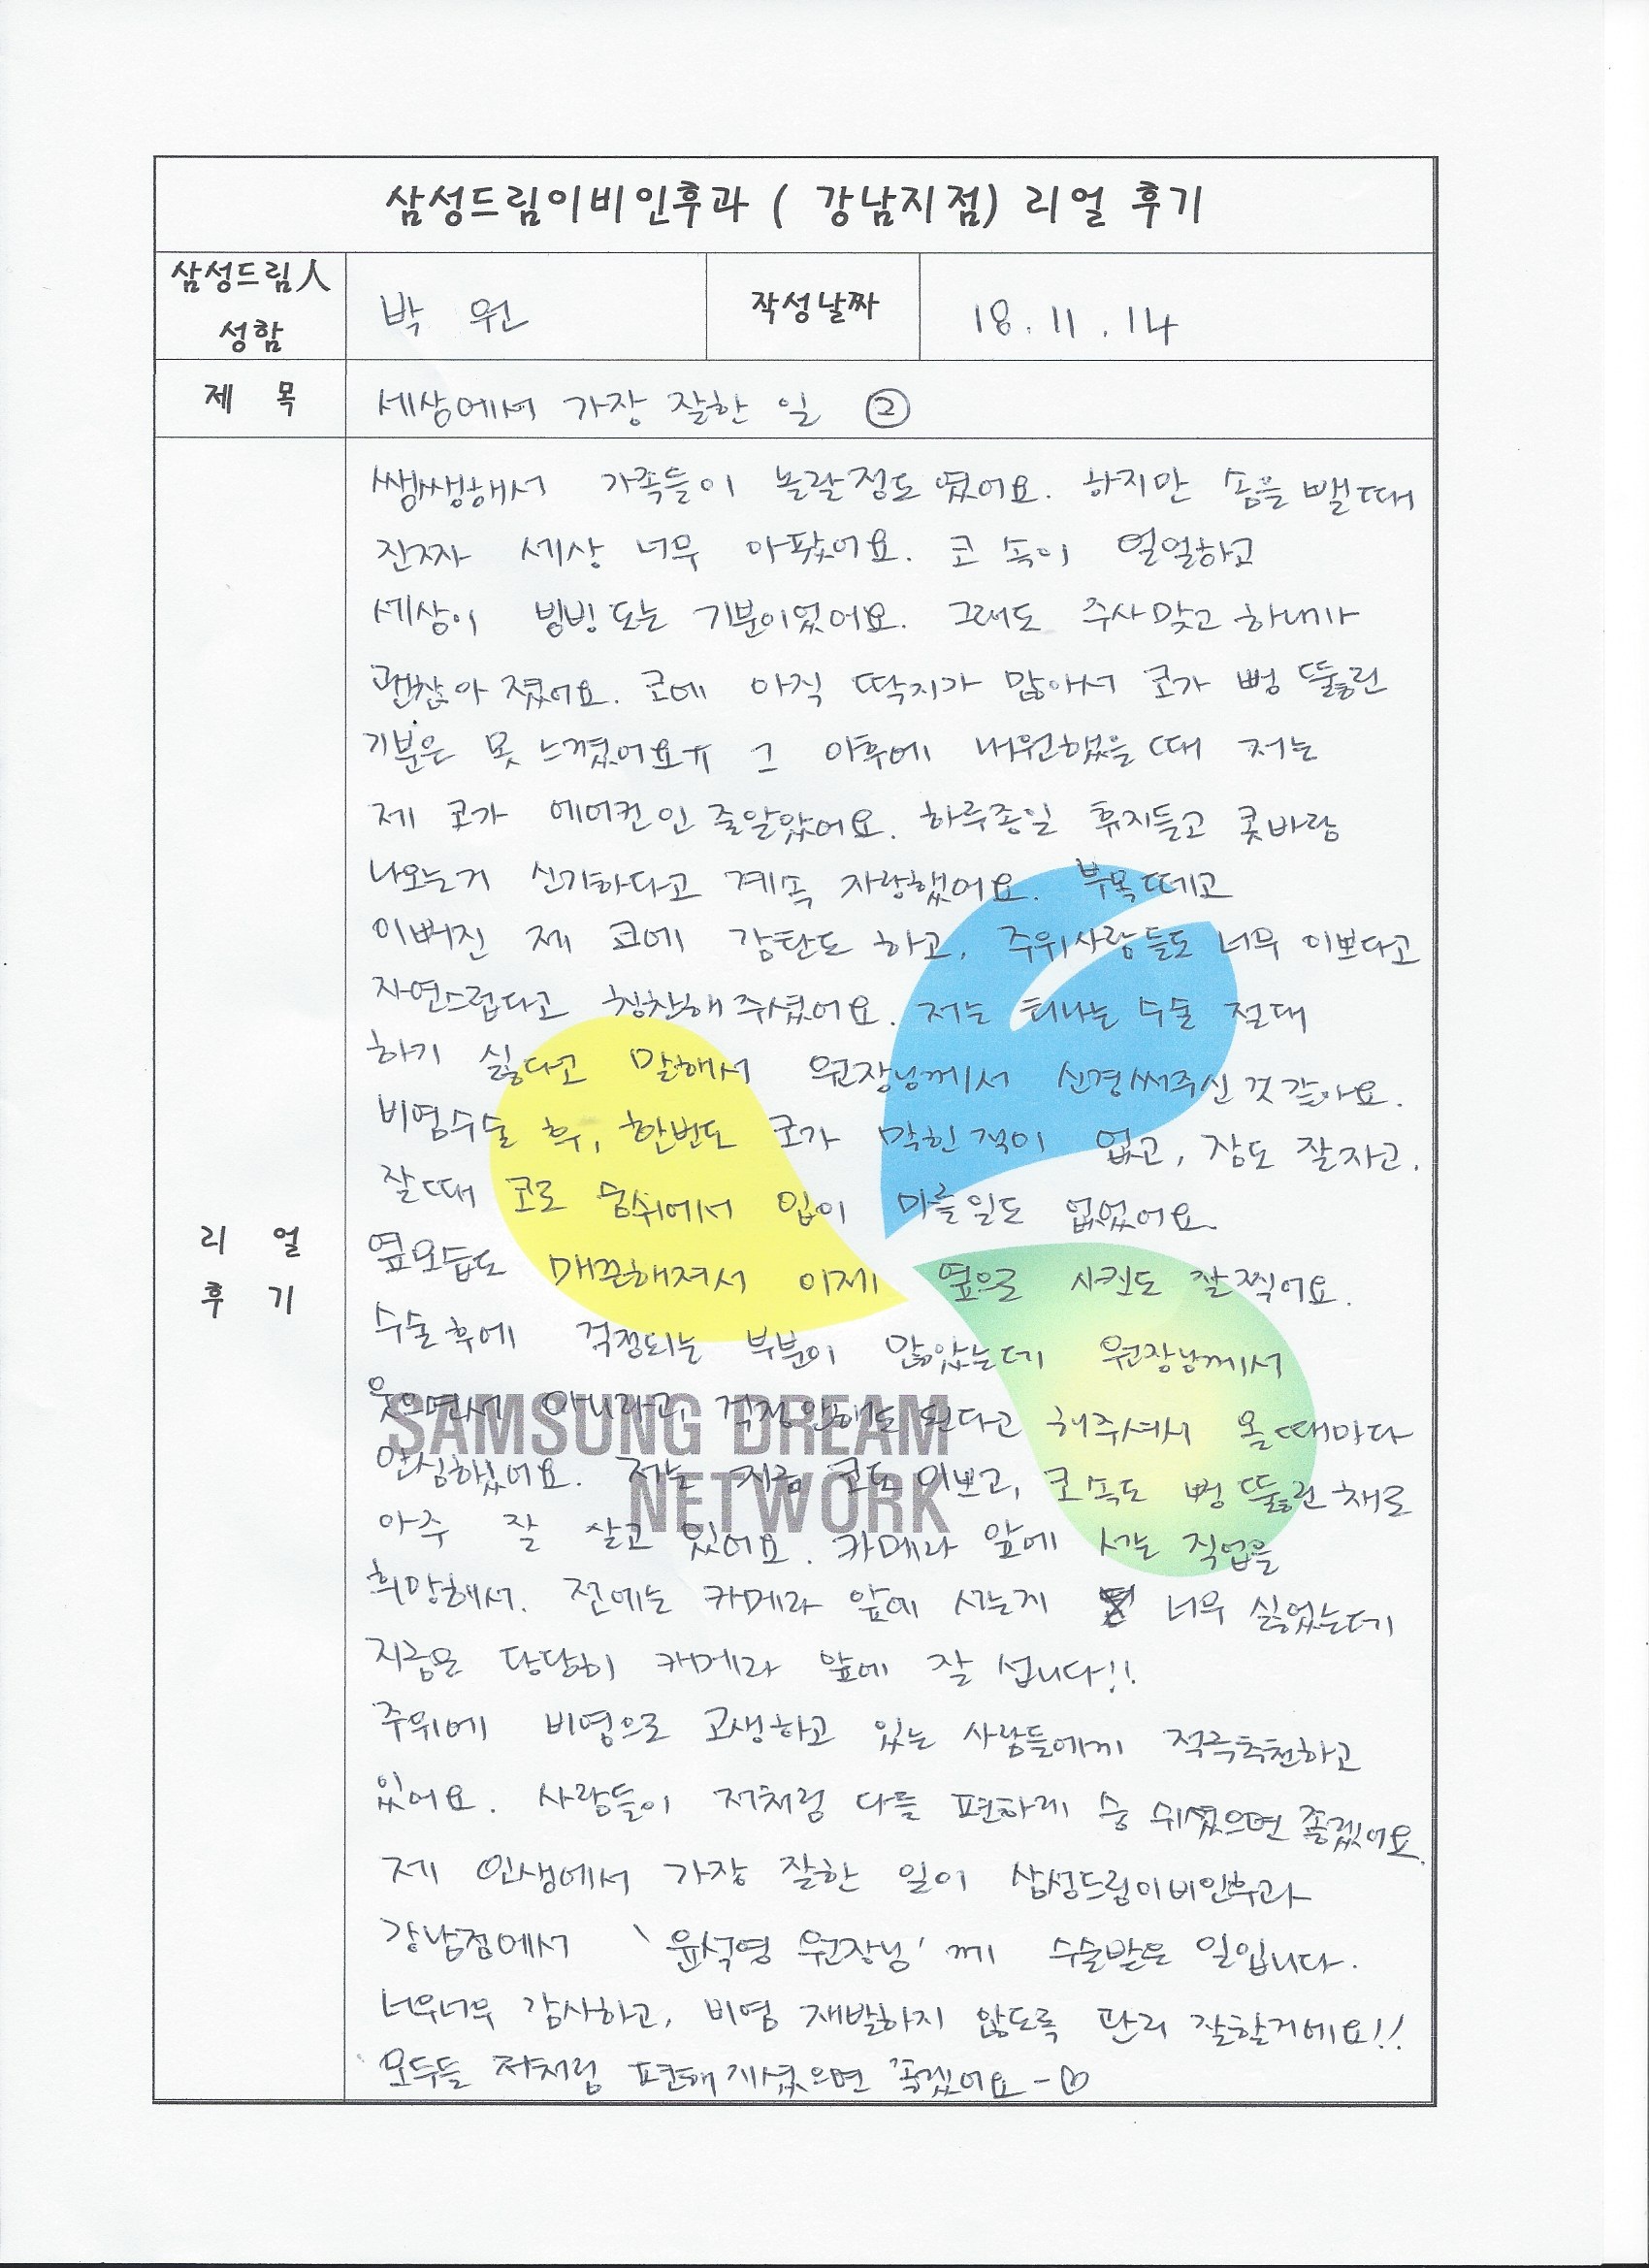 삼성드림이비인후과 ( 강남지점) 리얼 후기
삼성드림人
성함
박 원
작성날짜
18.11.14
제 목
세상에서 가장 잘한 일 ②
리 얼
후 기
쌩쌩해서 가족들이 놀랄정도였어요. 하지만 솜을 뺄때
진짜 세상 너무 아팠어요. 코 속이 얼얼하고
세상이 빙빙 도는 기분이었어요. 그래도 주사맞고 하니까
괜찮아 졌어요. 코에 아직 딱지가 많아서 코가 뻥 뚫린
기분은 못 느꼈어요ㅠ 그 이후에 내원했을때 저는
제 코가 에어컨인 줄알았어요. 하루종일 휴지들고 콧바람
나오는거 신기하다고 계속 자랑했어요. 부목떼고
이뻐진 제 코에 감탄도 하고, 주위사람들도 너무 이쁘다고
자연스럽다고 칭찬해주셨어요. 저는 티나는 수술 절대
하기 싫다고 말해서 원장님께서 신경써주신것같아요.
비염수술 후, 한번도 코가 막힌적이 없고, 잠도 잘자고.
잘때 코로 숨쉬에서 입이 마를일도 없었어요.
옆모습도 매끈해져서 이제 옆으로 사진도 잘찍어요.
수술후에 걱정되는 부분이 많았는데 원장님께서
웃으면서 아니라고, 걱정안해도 된다고 해주셔서 올때마다
안심했어요. 저는 지금 코도이쁘고, 코속도 뻥 뚫린채로
아주 잘 살고 있어요. 카메라 앞에 서는 직업을
희망해서. 전에는 카메라 앞에 서는게 너무 싫었는데
지금은 당당히 카메라 앞에 잘 섭니다!!
주위에 비염으로 고생하고 있는 사람들에게 적극추천하고
있어요. 사람들이 저처럼 다들 편하게 숨 쉬셨으면 좋겠어요.
제 인생에서 가장 잘한 일이 삼성드림이비인후과
강남점에서 '윤석영 원장님'께 수술받은 일입니다.
너무너무 감사하고, 비염 재발하지 않도록 관리 잘할거에요!!
모두들 저처럼 편해지셨으면 좋겠어요-♡
SAMSUNG DREAM
NETWORK